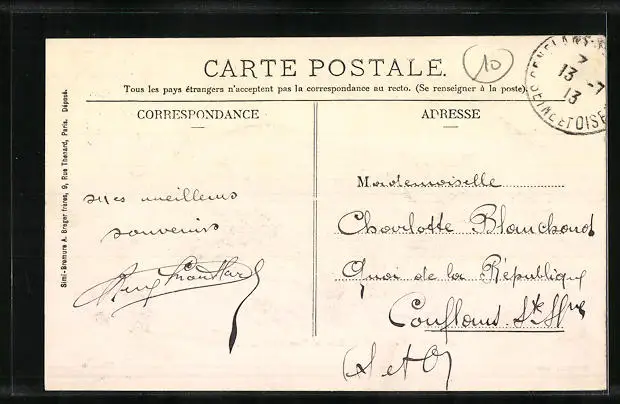 CARTE POSTALE.
10
Tous les pays étrangers n'acceptent pas la correspondance au recto. (Se renseigner à la poste).
CORRESPONDANCE
ADRESSE
7
13 -7
13
SEINE ET OISE
Simi-Bromure A. Breger frères, 9, Rue Thenard, Paris. Déposé.
Mes meilleurs
souvenirs
Mademoiselle
Charlotte Blanchard
Quai de la République
Conflans. Ste Hne
(S et O)